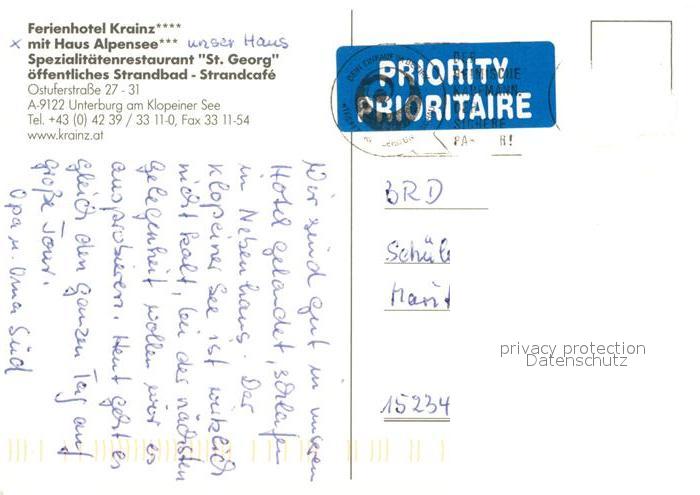 Ferienhotel Krainz****
x mit Haus Alpensee*** unser Haus
Spezialitätenrestaurant "St. Georg"
öffentliches Strandbad - Strandcafé
Ostuferstraße 27 - 31
A-9122 Unterburg am Klopeiner See
Tel. +43 (0) 42 39 / 33 11-0, Fax 33 11-54
www.krainz.at
Wir sind gut in unseren
Hotel gelandet, schlafen
in Nebenhaus. Der
Klopeiner See ist wirklich
nicht kalt, bei der nächsten
Gelegenheit wollen wir es
ausprobieren. Heut geht es
gleich den ganzen Tag auf
große Tour.
Opa u. Oma Süd
PRIORITY
PRIORITAIRE
DER
HEIMISCHE
KAUFMANN
SICHERE
BRD
Schül
Marit
15234
privacy protection
Datenschutz